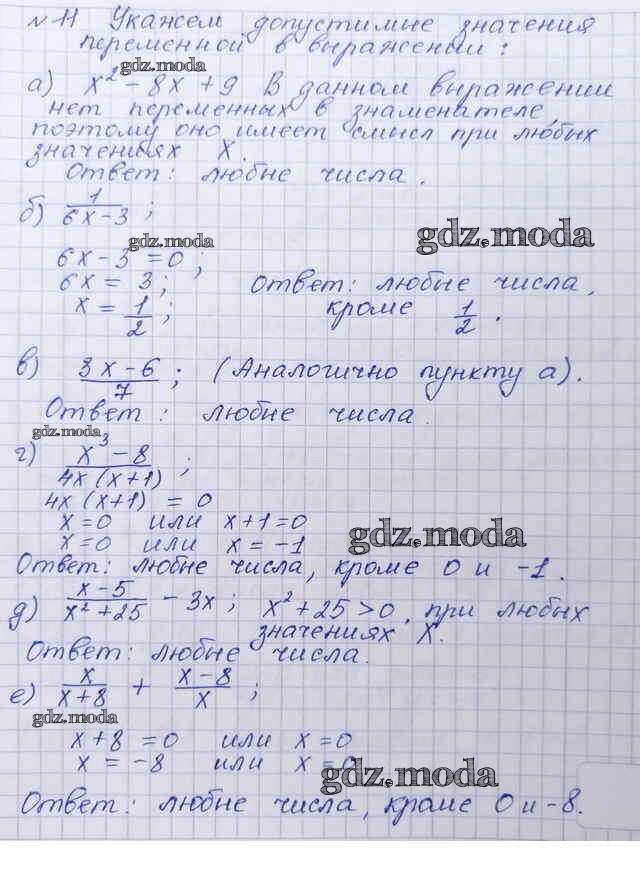 № 11 Укажем допустимые значения
переменной в выражении:
gdz.moda
а) x² - 8x + 9 В данном выражении
нет переменных в знаменателе,
поэтому оно имеет смысл при любых
значениях X.
Ответ: любые числа.
б) 1/(6x-3);
gdz.moda
gdz.moda
6x-3 = 0;
6x = 3;
x = 1/2;
Ответ: любые числа,
кроме 1/2.
в) (3x-6)/7; (Аналогично пункту а).
Ответ: любые числа.
gdz.moda
г) (x³-8)/(4x(x+1));
4x(x+1) = 0
x=0 или x+1=0
x=0 или x=-1
gdz.moda
Ответ: любые числа, кроме 0 и -1.
д) (x-5)/(x²+25) - 3x; x²+25 > 0, при любых
значениях X.
Ответ: любые числа.
е) x/(x+8) + (x-8)/x;
gdz.moda
x+8 = 0 или x = 0
x = -8 или x = 0
gdz.moda
Ответ: любые числа, кроме 0 и -8.